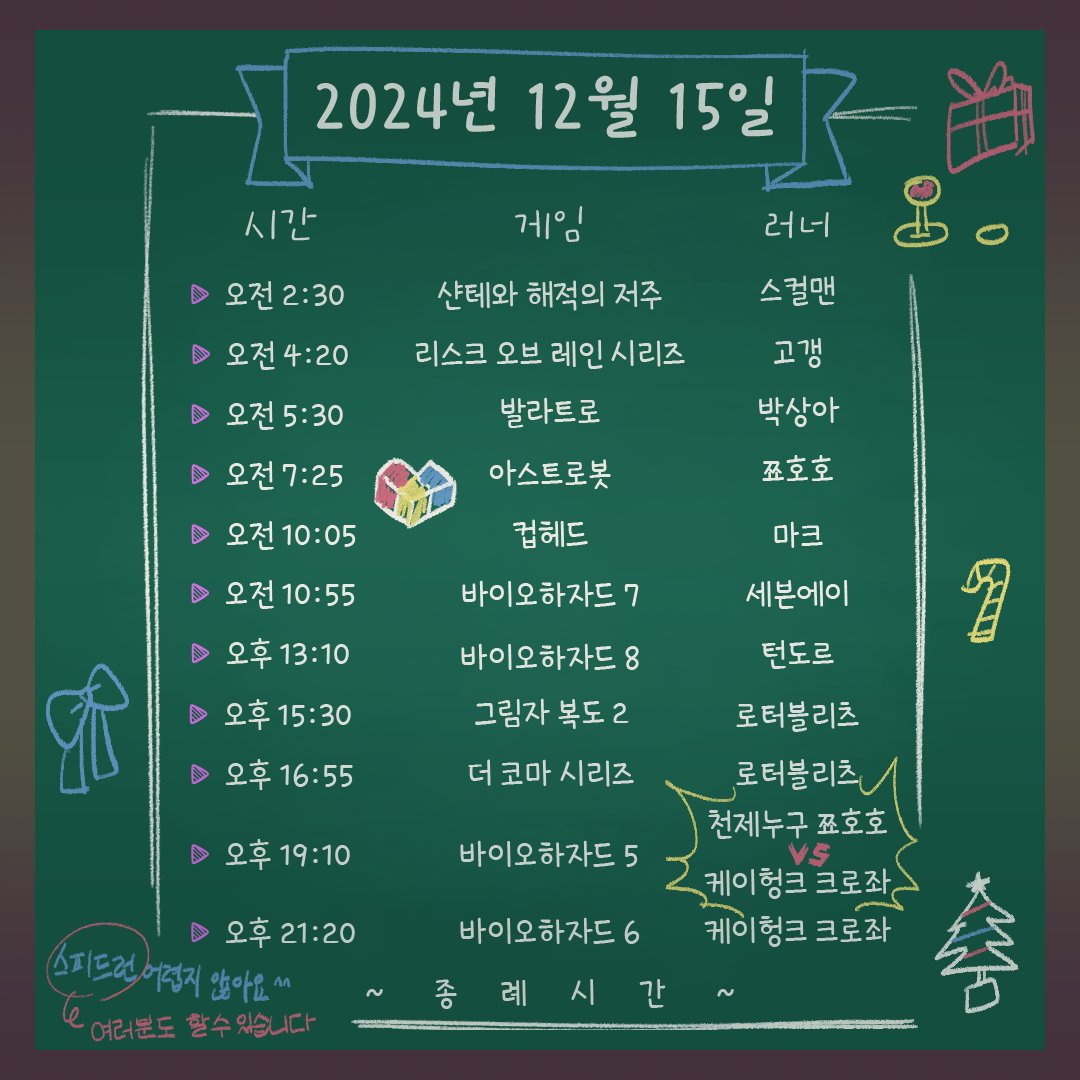 2024년 12월 15일
시간 게임 러너
오전 2:30 샨테와 해적의 저주 스컬맨
오전 4:20 리스크 오브 레인 시리즈 고갱
오전 5:30 발라트로 박상아
오전 7:25 아스트로봇 쬬호호
오전 10:05 컵헤드 마크
오전 10:55 바이오하자드 7 세븐에이
오후 13:10 바이오하자드 8 턴도르
오후 15:30 그림자 복도 2 로터블리츠
오후 16:55 더 코마 시리즈 로터블리츠
오후 19:10 바이오하자드 5 천제누구 쬬호호
VS
케이헝크 크로좌
오후 21:20 바이오하자드 6 케이헝크 크로좌
~ 종 례 시 간 ~
스피드런 어렵지 않아요^^
여러분도 할수있습니다